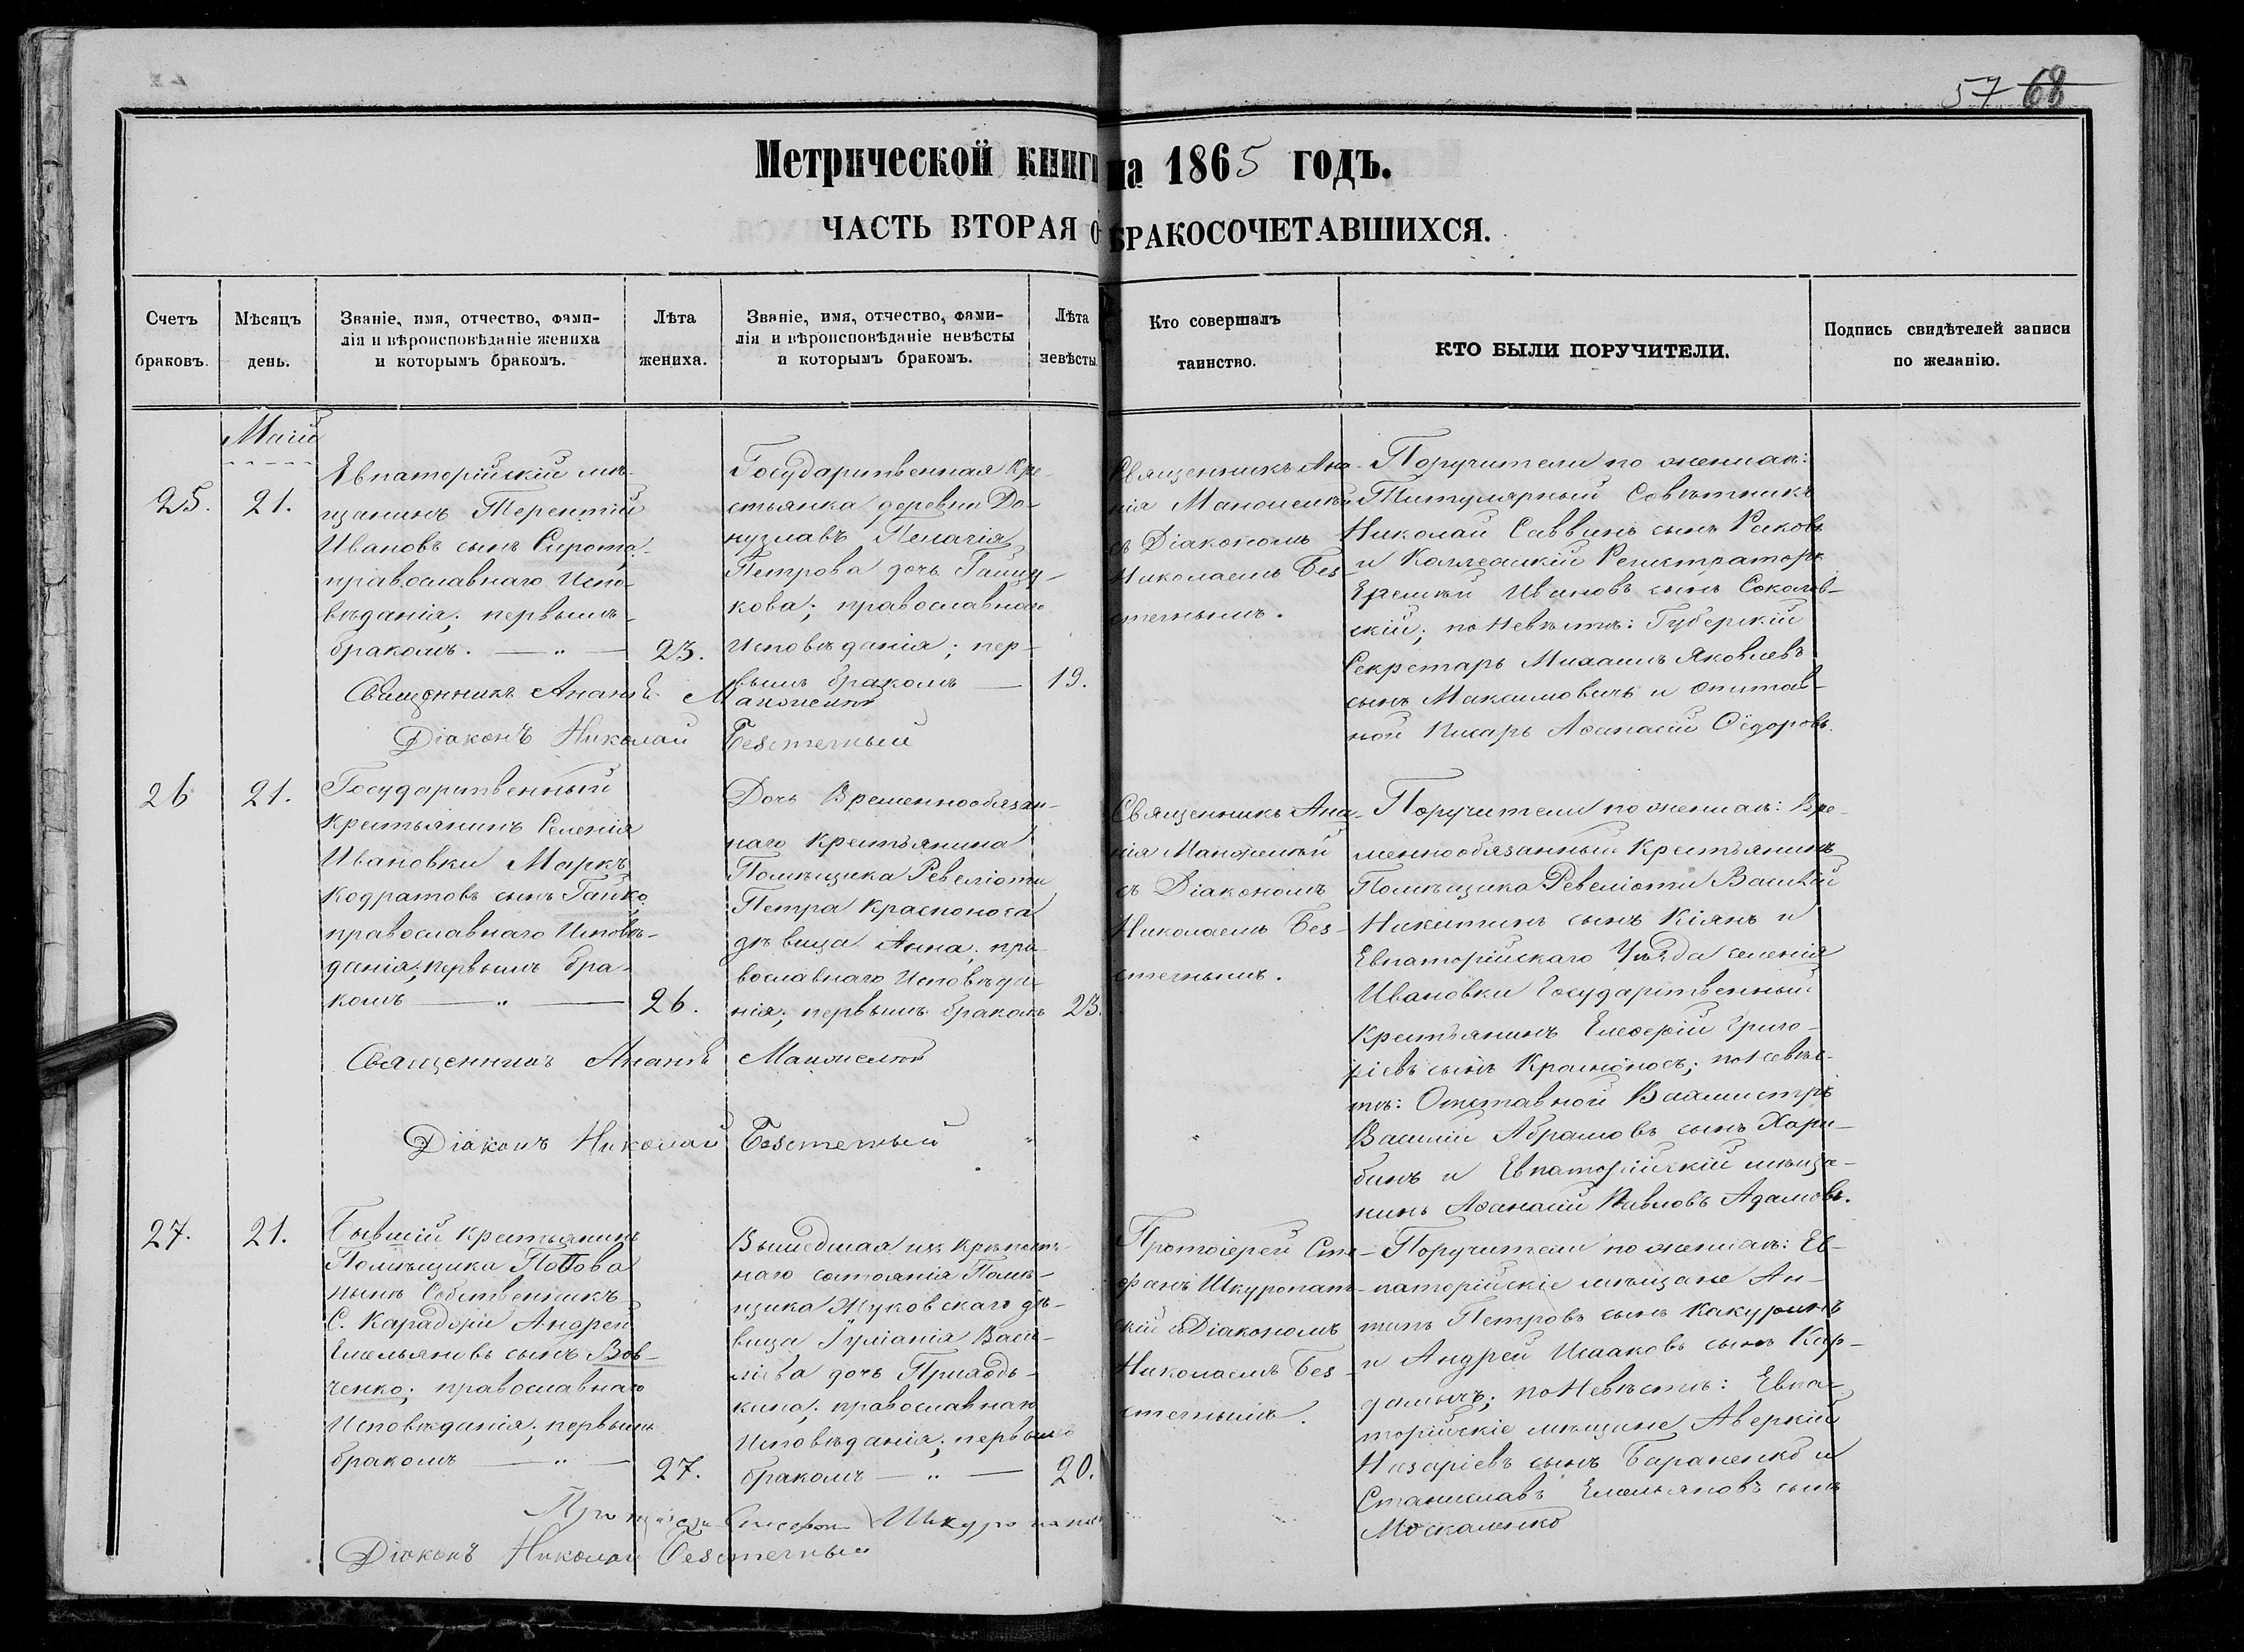 57 68
Метрической книги на 1865 годъ.
ЧАСТЬ ВТОРАЯ О БРАКОСОЧЕТАВШИХСЯ.
Счетъ браковъ.
Мѣсяцъ день.
Званіе, имя, отчество, фами-
лія и вѣроисповѣданіе жениха
и которымъ бракомъ.
Лѣта жениха.
Званіе, имя, отчество, фами-
лія и вѣроисповѣданіе невѣсты
и которымъ бракомъ.
Лѣта невѣсты
Кто совершалъ
таинство.
КТО БЫЛИ ПОРУЧИТЕЛИ.
Подпись свидѣтелей записи
по желанію.
Маій
25.
21.
Евпаторійскій мѣ-
щанинъ Терентій
Ивановъ сынъ Сирота,
православнаго Испо-
вѣданія; первымъ
бракомъ. — „ —
23.
Государственная Кре-
стьянка деревни До-
нузлавъ Пелагія
Петрова дочь
кова; православнаго
Исповѣданія; пер-
вымъ бракомъ —
19.
Священникъ Ана-
нія
съ Діакономъ
Николаемъ Без-
стечнымъ.
Поручители по женихѣ:
Титулярный Совѣтникъ
Николай Саввинъ сынъ Раковъ
и Коллежскій Регистраторъ
Еремѣй Ивановъ сынъ Соколов-
скій; по Невѣстѣ: Губерскій
Секретарь Михаилъ Яковлевъ
сынъ Максимовичъ и отстав-
ной Писарь Афанасій Ѳёдоровъ.
Священникъ Ананій
Діаконъ Николай Безстечный
26
21.
Государственный
Крестьянинъ Селенія
Ивановки Маркъ
Кодратовъ сынъ Гайко,
православнаго Исповѣ-
данія; первымъ бра-
комъ — „ —
26.
Дочь Временнообязан-
наго Крестьянина
Помѣщика Ревеліоти
Петра Красноноса
дѣвица Анна; пра-
вославнаго Исповѣда-
нія; первымъ бракомъ
23.
Священникъ Ана-
нія
съ Діакономъ
Николаемъ Без-
стечнымъ.
Поручители по женихѣ: Вре-
меннообязанный Крестьянинъ
Помѣщика Ревеліоти Василій
Никитинъ сынъ Кіянъ и
Евпаторійскаго Уѣзда селенія
Ивановки Государственный
Крестьянинъ Елеферій Григо-
ріевъ сынъ Красноносъ; по Невѣс-
тѣ: Отставной Вахмистръ
Василій Абрамовъ сынъ Хари-
бинъ и Евпаторійскій мѣща-
нинъ Афанасій Павловъ Адамовъ.
Священникъ Ананій
Діаконъ Николай Безстечный
27.
21.
Бывшій крестьянинъ
Помѣщика Попова
нынѣ Собственникъ
С. Караджи Андрей
Емельяновъ сынъ Вов-
ченко; православнаго
Исповѣданія; первымъ
бракомъ — „ —
27.
Вышедшая изъ Крѣпост-
наго состоянія Помѣ-
щика Жуковскаго дѣ-
вица Іуліанія Васи-
ліева дочь Приходь-
кина; православнаго
Исповѣданія; первымъ
бракомъ — „ —
20.
Протоіерей Сте-
фанъ Шкуропат-
скій съ Діакономъ
Николаемъ Без-
стечнымъ.
Поручители по женихѣ: Ев-
паторійскіе мѣщане Ан-
типъ Петровъ сынъ Какуринъ
и Андрей Исааковъ сынъ Кар-
далычъ; по Невѣстѣ: Евпа-
торійскіе мѣщане Аверкій
Назаріевъ сынъ Бараненко и
Станиславъ Емельяновъ сынъ
Москаленко
Протоіерей Стефан
Діаконъ Николай Безстечный